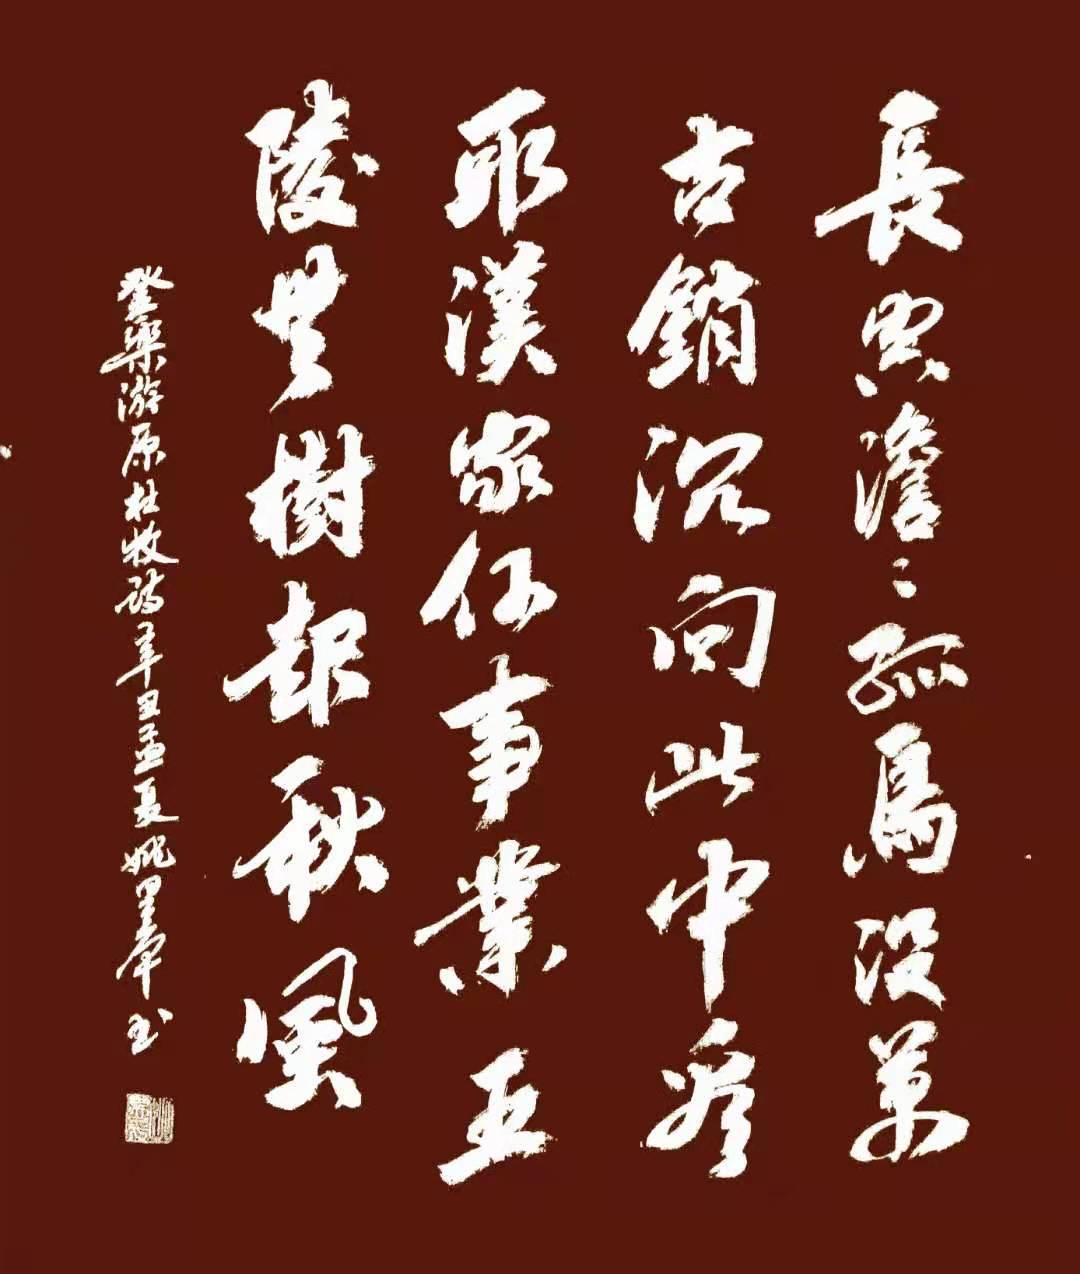 長空澹〻孤鳥没萬
古銷沉向此中看
取漢家何事業五
陵無樹起秋風
登樂游原杜牧诗辛丑孟夏姚书